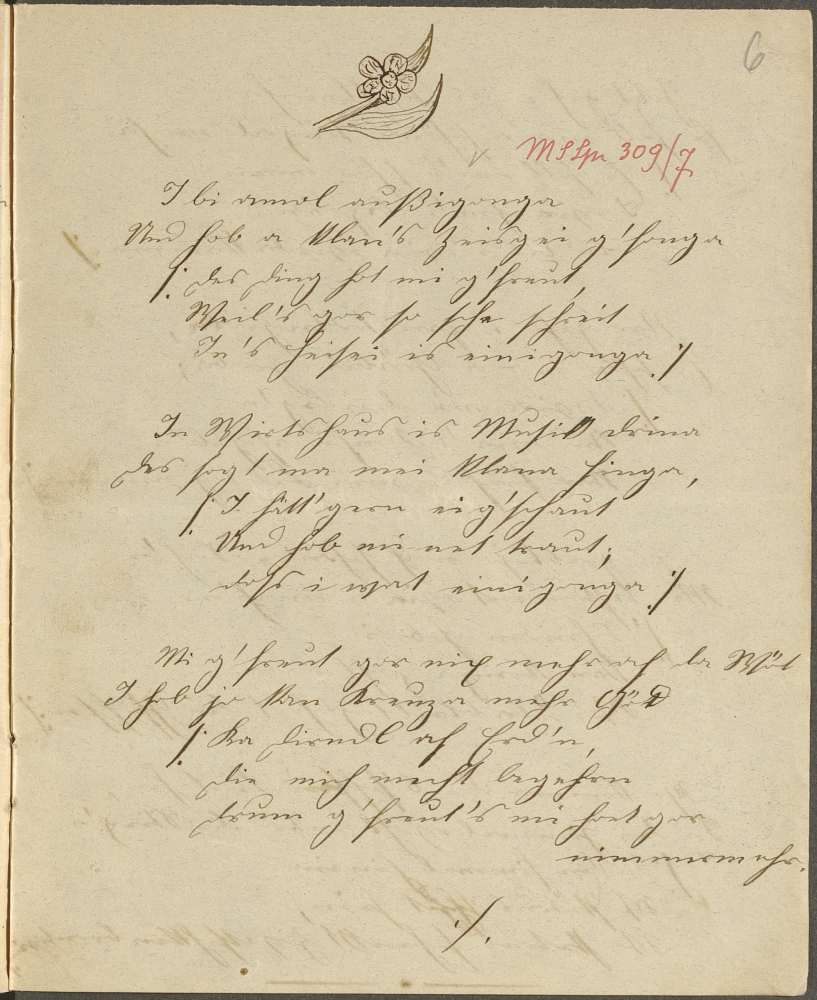 6
MS Lp 309/7
I bi amol außigonga
Und hob a klan's Zeisgei g'fonga
/: des Ding hot mi g'freut,
Weil's gor so sche schreit
In's Heisei is einigonga :/
In Wirtshaus is Musik drina
Des sogt ma mei klana Finga,
/: I hätt' gern eig'schaut
Und hob mi net traut,
dass i wat einigonga :/
Mi g'freut gor nix mehr af da Wöt
I hob jo kan Kreuza mehr Göd
/: Ka Dirndl af Erd'n,
die mich mecht begehrn
drum g'freut's mi holt gor
nimmermehr.
:/.